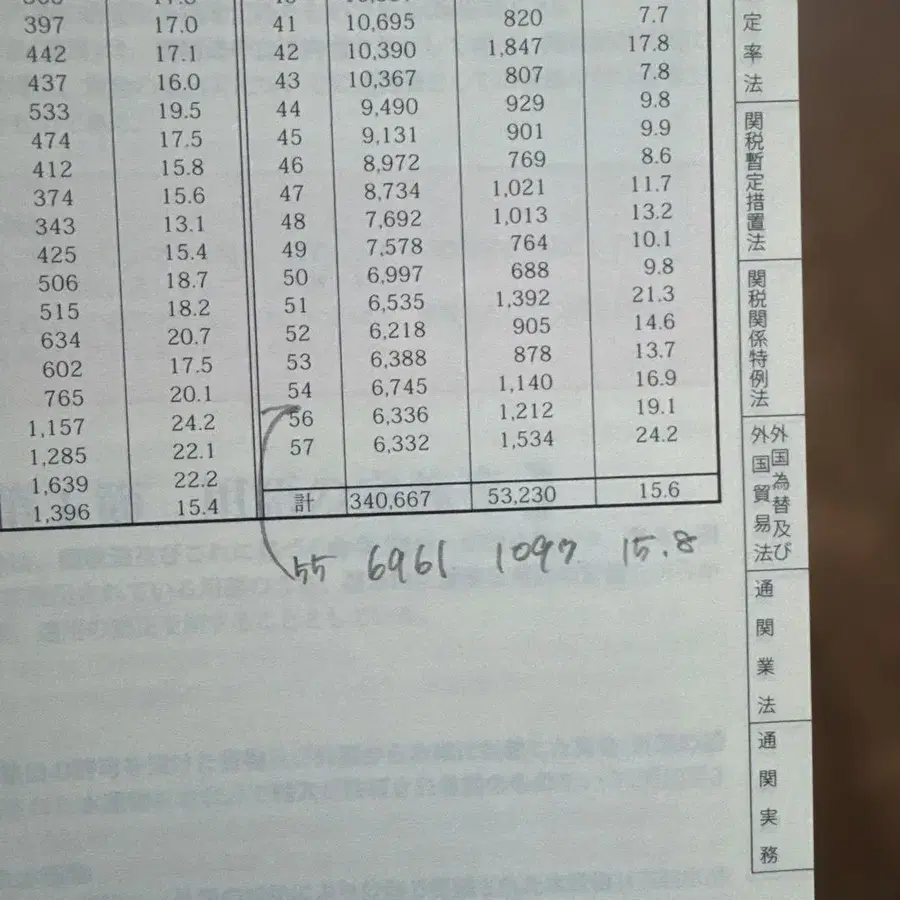 397 17.0 41 10,695 820 7.7
442 17.1 42 10,390 1,847 17.8
437 16.0 43 10,367 807 7.8
533 19.5 44 9,490 929 9.8
474 17.5 45 9,131 901 9.9
412 15.8 46 8,972 769 8.6
374 15.6 47 8,734 1,021 11.7
343 13.1 48 7,692 1,013 13.2
425 15.4 49 7,578 764 10.1
506 18.7 50 6,997 688 9.8
515 18.2 51 6,535 1,392 21.3
634 20.7 52 6,218 905 14.6
602 17.5 53 6,388 878 13.7
765 20.1 54 6,745 1,140 16.9
1,157 24.2 56 6,336 1,212 19.1
1,285 22.1 57 6,332 1,534 24.2
1,639 22.2
1,396 15.4 計 340,667 53,230 15.6
55 6961 1097 15.8
定率法
関税暫定措置法
関税関係特例法
外国為替及び
外国貿易法
通関業法
通関実務